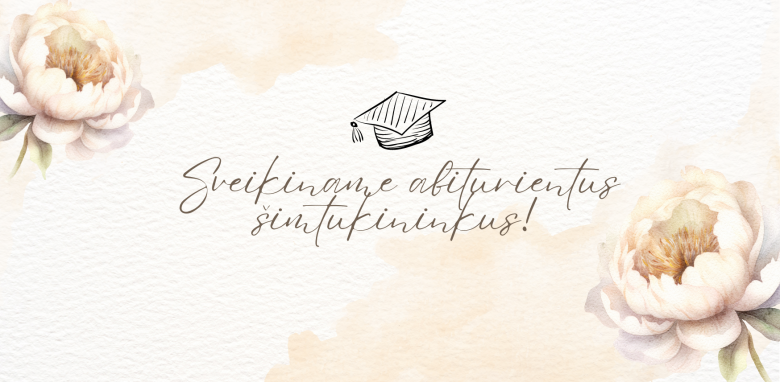 Sveikiname abiturientus
šimtukininkus!